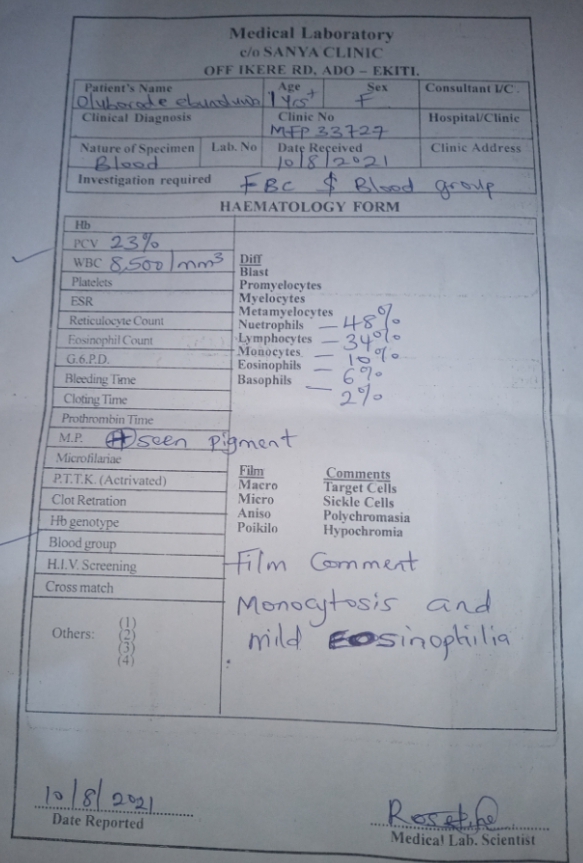 Medical Laboratory
c/o SANYA CLINIC
OFF IKERE RD, ADO – EKITI.
Patient's Name Age Sex Consultant I/C
1 yrs+ F
Clinical Diagnosis Clinic No Hospital/Clinic
MFP 33727
Nature of Specimen Lab. No Date Received Clinic Address
Blood 10/8/2021
Investigation required FBC $ Blood group
HAEMATOLOGY FORM
Hb
PCV 23%
WBC 8,500/mm³
Platelets
ESR
Reticulocyte Count
Eosinophil Count
G.6.P.D.
Bleeding Time
Cloting Time
Prothrombin Time
M.P. (+) seen pigment
Microfilariae
P.T.T.K. (Actrivated)
Clot Retration
Hb genotype
Blood group
H.I.V. Screening
Cross match
Others: (1)
(2)
(3)
(4)
Diff
Blast
Promyelocytes
Myelocytes
Metamyelocytes
Nuetrophils — 48%
Lymphocytes — 34%
Monocytes — 10%
Eosinophils — 6%
Basophils — 2%
Film Comments
Macro Target Cells
Micro Sickle Cells
Aniso Polychromasia
Poikilo Hypochromia
Film Comment
Monocytosis and
mild Eosinophilia
10/8/2021
Date Reported
Medical Lab. Scientist